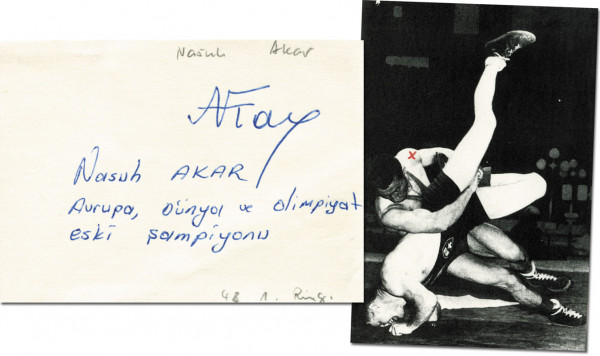 Nasuh Akar
Nasuh AKAR
Avrupa, Dünya ve Olimpiyat
eski şampiyonu
48 1. Ring.